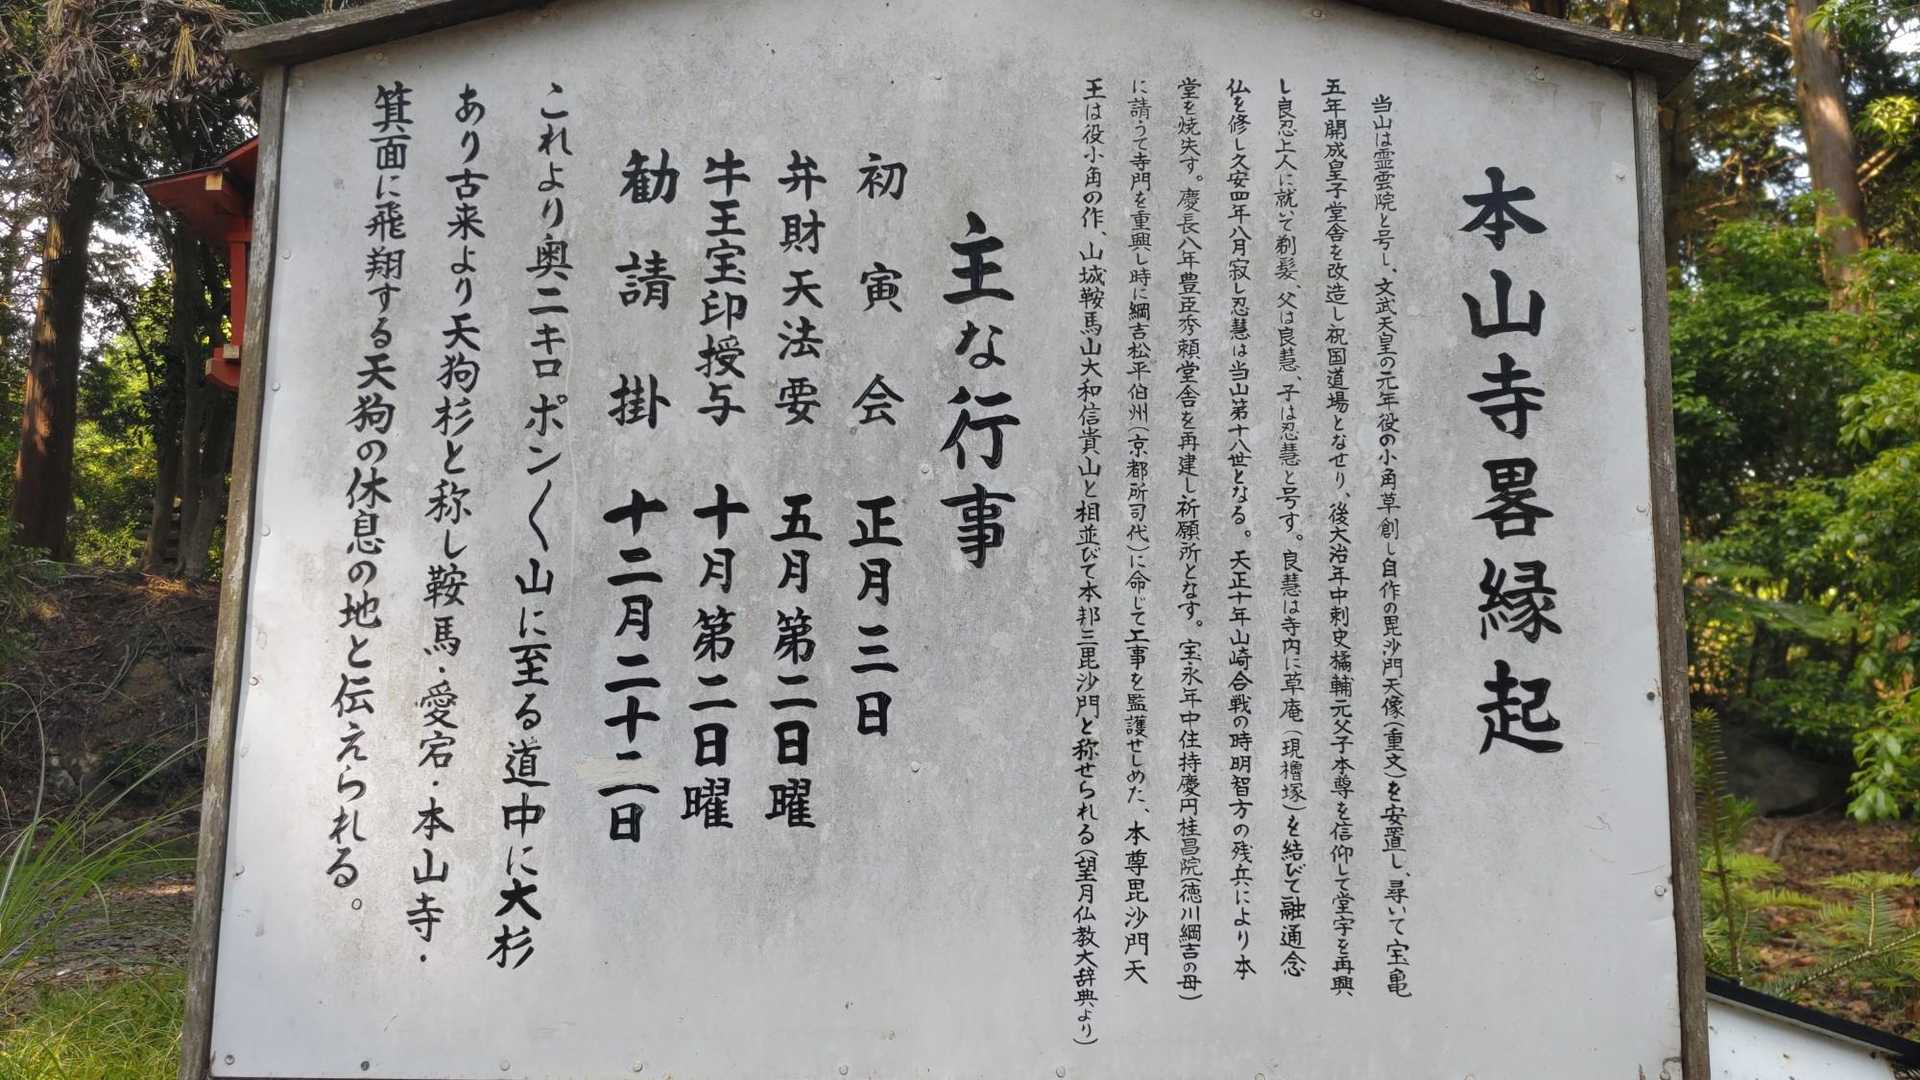 本山寺畧縁起
当山は霊雲院と号し、文武天皇の元年役の小角草創し自作の毘沙門天像(重文)を安置し、尋いて宝亀
五年開成皇子堂舎を改造し祝国道場となせり、後大治年中刺史橘輔元父子本尊を信仰して堂宇を再興
し良忍上人に就いて剃髪、父は良慧、子は忍慧と号す。良慧は寺内に草庵(現櫓塚)を結びて融通念
仏を修し久安四年八月寂し忍慧は当山第十八世となる。天正十年山崎合戦の時明智方の残兵により本
堂を焼失す。慶長八年豊臣秀頼堂舎を再建し祈願所となす。宝永年中住持慶円桂昌院(徳川綱吉の母)
に請うて寺門を重興し時に綱吉松平伯州(京都所司代)に命じて工事を監護せしめた、本尊毘沙門天
王は役小角の作、山城鞍馬山大和信貴山と相並びて本邦三毘沙門と称せられる(望月仏教大辞典より)
主な行事
初寅会 正月三日
弁財天法要 五月第二日曜
牛王宝印授与 十月第二日曜
勧請掛 十二月二十二日
これより奥二キロポン〱山に至る道中に大杉
あり古来より天狗杉と称し鞍馬・愛宕・本山寺・
箕面に飛翔する天狗の休息の地と伝えられる。